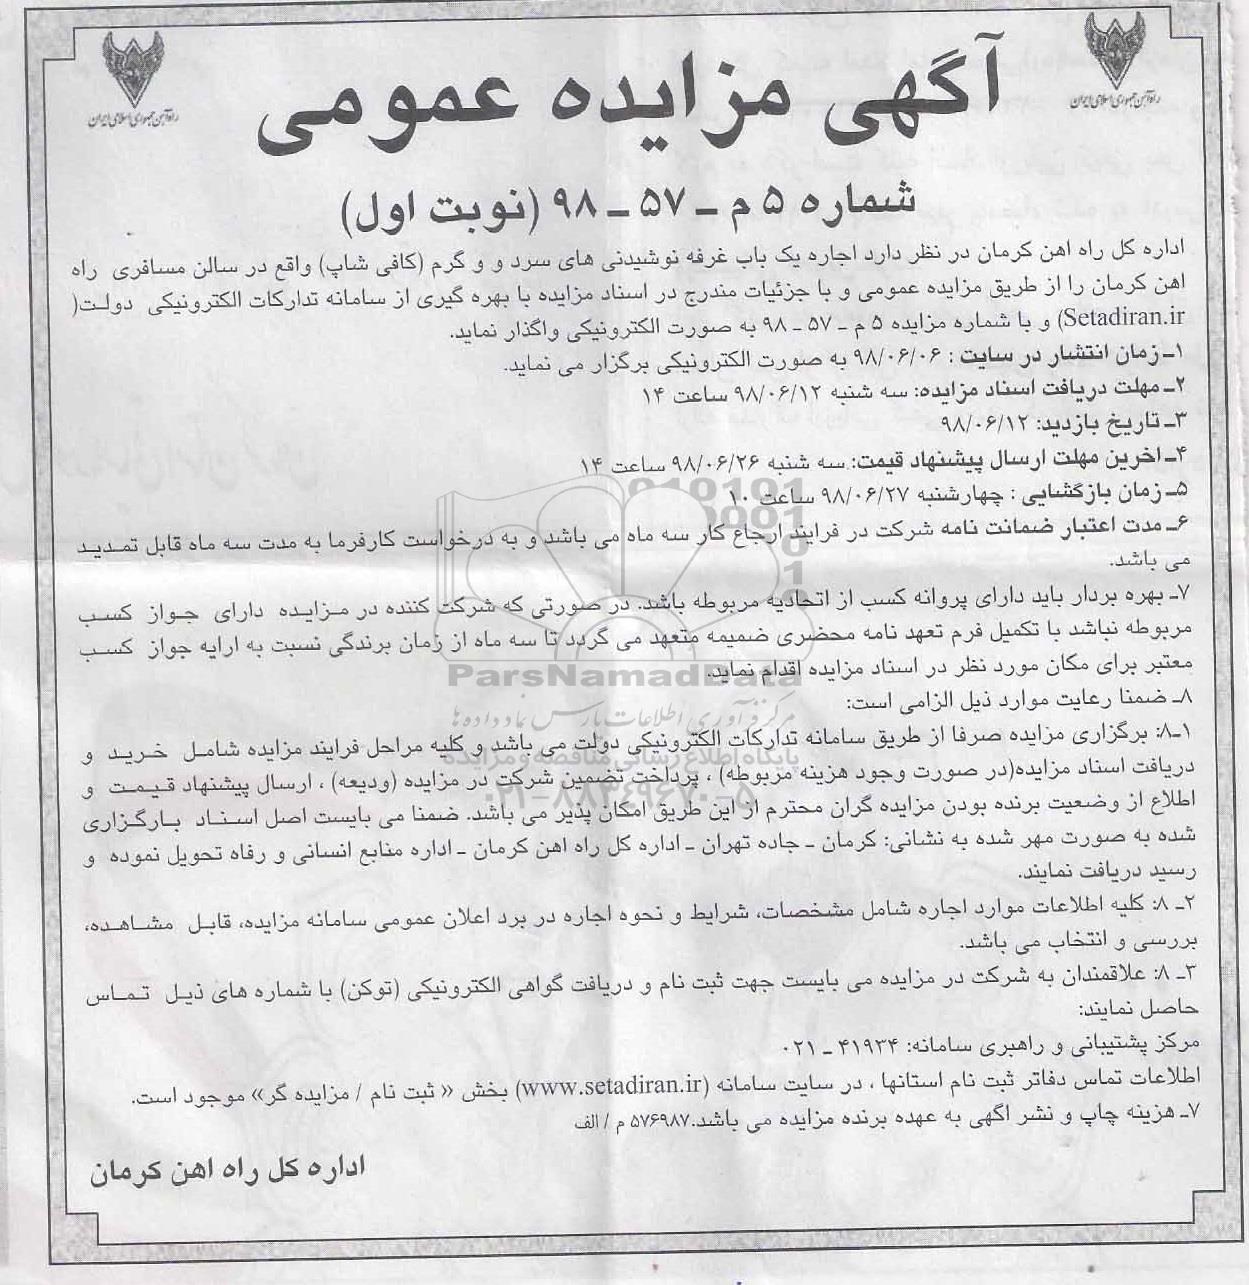 راه‌آهن جمهوری اسلامی ایران
راه‌آهن جمهوری اسلامی ایران
آگهی مزایده عمومی
شماره ۵ م ـ ۵۷ ـ ۹۸ (نوبت اول)
اداره کل راه اهن کرمان در نظر دارد اجاره یک باب غرفه نوشیدنی های سرد و و گرم (کافی شاپ) واقع در سالن مسافری راه
اهن کرمان را از طریق مزایده عمومی و با جزئیات مندرج در اسناد مزایده با بهره گیری از سامانه تدارکات الکترونیکی دولت(
Setadiran.ir) و با شماره مزایده ۵ م ـ ۵۷ ـ ۹۸ به صورت الکترونیکی واگذار نماید.
۱ـ زمان انتشار در سایت : ۹۸/۰۶/۰۶ به صورت الکترونیکی برگزار می نماید.
۲ـ مهلت دریافت اسناد مزایده: سه شنبه ۹۸/۰۶/۱۲ ساعت ۱۴
۳ـ تاریخ بازدید: ۹۸/۰۶/۱۲
۴ـ اخرین مهلت ارسال پیشنهاد قیمت: سه شنبه ۹۸/۰۶/۲۶ ساعت ۱۴
۵ـ زمان بازگشایی : چهارشنبه ۹۸/۰۶/۲۷ ساعت ۱۰
۶ـ مدت اعتبار ضمانت نامه شرکت در فرایند ارجاع کار سه ماه می باشد و به درخواست کارفرما به مدت سه ماه قابل تمدید
می باشد.
۷ـ بهره بردار باید دارای پروانه کسب از اتحادیه مربوطه باشد. در صورتی که شرکت کننده در مزایده دارای جواز کسب
مربوطه نباشد با تکمیل فرم تعهد نامه محضری ضمیمه متعهد می گردد تا سه ماه از زمان برندگی نسبت به ارایه جواز کسب
معتبر برای مکان مورد نظر در اسناد مزایده اقدام نماید.
ParsNamadData
۸ـ ضمنا رعایت موارد ذیل الزامی است:
مرکز فرآوری اطلاعات پارس نماد داده‌ها
۱ـ۸: برگزاری مزایده صرفا از طریق سامانه تدارکات الکترونیکی دولت می باشد و کلیه مراحل فرایند مزایده شامل خرید و
پایگاه اطلاع رسانی مناقصه و مزایده
دریافت اسناد مزایده(در صورت وجود هزینه مربوطه) ، پرداخت تضمین شرکت در مزایده (ودیعه) ، ارسال پیشنهاد قیمت و
۰۲۱-۸۸۳۴۹۶۷۰-۵
اطلاع از وضعیت برنده بودن مزایده گران محترم از این طریق امکان پذیر می باشد. ضمنا می بایست اصل اسناد بارگزاری
شده به صورت مهر شده به نشانی: کرمان ـ جاده تهران ـ اداره کل راه اهن کرمان ـ اداره منابع انسانی و رفاه تحویل نموده و
رسید دریافت نمایند.
۲ـ ۸: کلیه اطلاعات موارد اجاره شامل مشخصات، شرایط و نحوه اجاره در برد اعلان عمومی سامانه مزایده، قابل مشاهده،
بررسی و انتخاب می باشد.
۳ـ ۸: علاقمندان به شرکت در مزایده می بایست جهت ثبت نام و دریافت گواهی الکترونیکی (توکن) با شماره های ذیل تماس
حاصل نمایند:
مرکز پشتیبانی و راهبری سامانه: ۴۱۹۳۴ ـ ۰۲۱
اطلاعات تماس دفاتر ثبت نام استانها ، در سایت سامانه (www.setadiran.ir) بخش « ثبت نام / مزایده گر» موجود است.
۷ـ هزینه چاپ و نشر اگهی به عهده برنده مزایده می باشد.۵۷۶۹۸۷ م / الف
اداره کل راه اهن کرمان